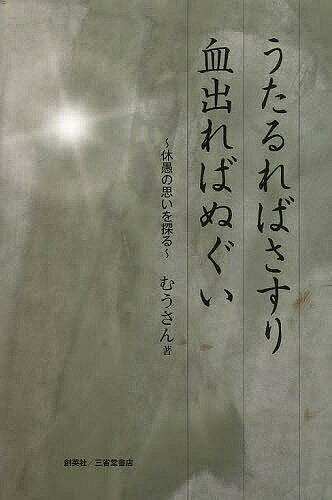 うたるればさすり
血出ればぬぐい
～休愚の思いを探る～
むうさん 著
創英社／三省堂書店